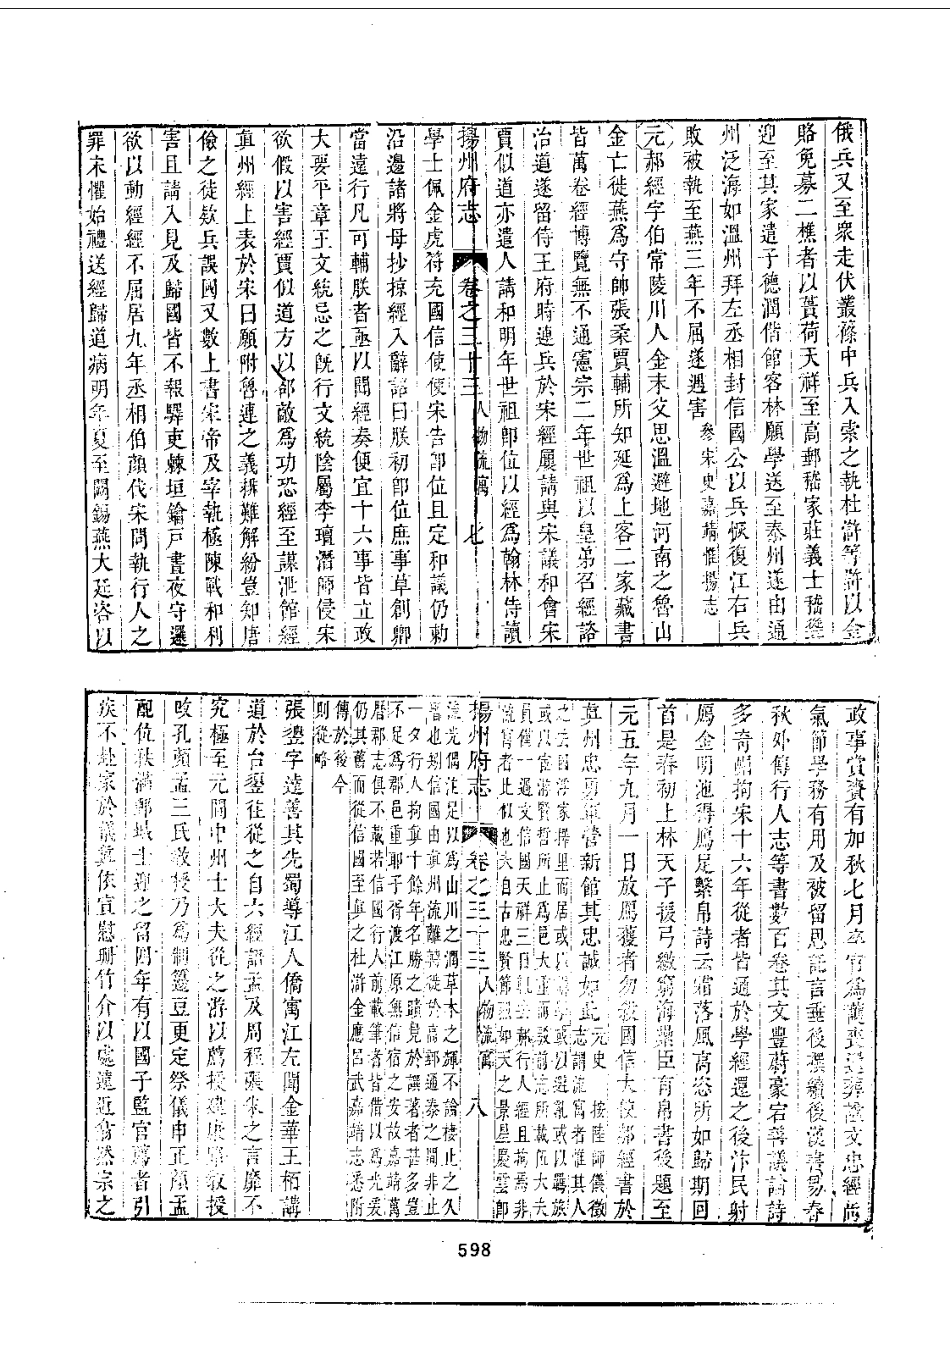 俄兵又至衆走伏叢篠中兵入索之執杜滸等滸以金
賂免募二樵者以蕢荷天祥至高郵嵇家莊義士嵇聳
迎至其家遣子德潤偕館客林願學送至泰州遂由通
州泛海如溫州拜左丞相封信國公以兵恢復江右兵
敗被執至燕三年不屈遂遇害 參宋史嘉靖惟揚志
元郝經字伯常陵川人金末父思溫避地河南之魯山
金亡徙燕爲守帥張柔賈輔所知延爲上客二家藏書
皆萬卷經博覽無不通憲宗二年世祖以皇弟召經諮
治道遂留侍王府時連兵於宋經屢請與宋議和會宋
賈似道亦遣人請和明年世祖卽位以經爲翰林侍讀
揚州府志 卷之三十三 人物流寓 七
學士佩金虎符充國信使使宋告卽位且定和議仍勅
沿邊諸將毋抄掠經入辭詔曰朕初卽位庶事草創卿
當遠行凡可輔朕者亟以聞經奏便宜十六事皆立政
大要平章王文統忌之旣行文統陰屬李璮潛師侵宋
欲假以害經賈似道方以卻敵爲功恐經至謀泄館經
眞州經上表於宋曰願附魯連之義排難解紛豈知唐
儉之徒欵兵誤國又數上書宋帝及宰執極陳戰和利
害且請入見及歸國皆不報驛吏棘垣鑰戶晝夜守邏
欲以動經經不屈居九年丞相伯顏伐宋問執行人之
罪宋懼始禮送經歸道病明年夏至闕錫燕大廷咨以
政事賞賚有加秋七月卒官爲護喪還葬諡文忠經尚
氣節學務有用及被留思託言垂後撰續後漢書易春
秋外傳行人志等書數百卷其文豐蔚豪宕善議論詩
多奇崛拘宋十六年從者皆通於學經還之後汴民射
鴈金明池得鴈足繫帛詩云霜落風高恣所如歸期回
首是春初上林天子援弓繳窮海纍臣有帛書後題至
元五年九月一日放鴈獲者勿殺國信大使郝經書於
眞州忠勇軍營新館其忠誠如此 元史 按陸師儀徵志謂流寓者惟其人
之去國
或以宦游賢哲所止爲邑大重
員僅一過文信國天祥三日
流寓者比似也夫自古忠賢節烈如天之景星慶雲卽
揚州府志 卷之三十三 人物流寓 八
流光偶注足以爲山川之潤草木之輝不論棲止之久
暫也矧信國由眞州流離轉徙於高郵通泰之間非止
一夕行人拘眞十餘年名勝之蹟見於譔著者甚多豈
不足爲郡邑重耶子胥渡江原無信宿之安故嘉靖萬
曆郡志俱不載若信國行人前載筆者皆借以爲光茲
仍其舊而從信國至眞之杜滸金應呂武嘉靖志悉附
傳於後今
則從略
張䇓字達善其先蜀導江人僑寓江左聞金華王栢講
道於台䇓往從之自六經語孟及周程張朱之言靡不
究極至元間中州士大夫從之游以薦授建康路敎授
改孔顏孟三氏敎授乃爲制籩豆更定祭儀申正顏孟
配位秩滿鄆城士迎之留四年有以國子監官薦者引
疾不赴家於儀眞依宣慰珊竹介以處遠近翕然宗之
598